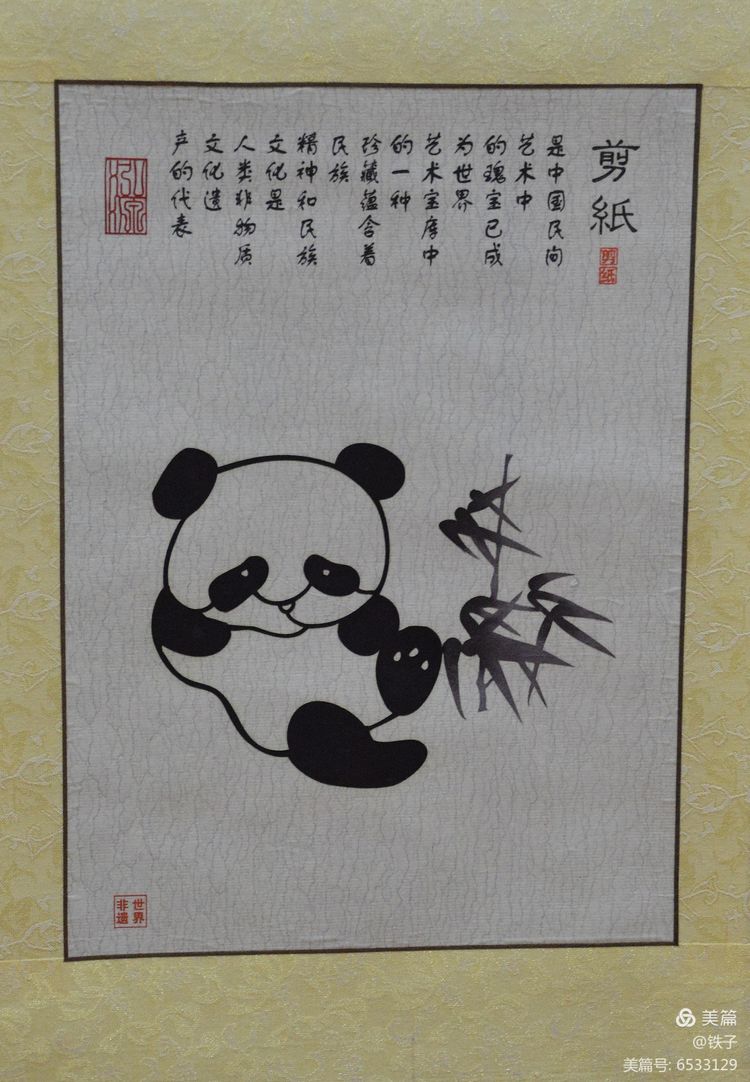 剪紙
剪纸
是中国民间
艺术中
的瑰宝已成
为世界
艺术宝库中
的一种
珍藏蕴含着
民族
精神和民族
文化是
人类非物质
文化遗
产的代表
世界
非遗
美篇
@铁子
美篇号: 6533129